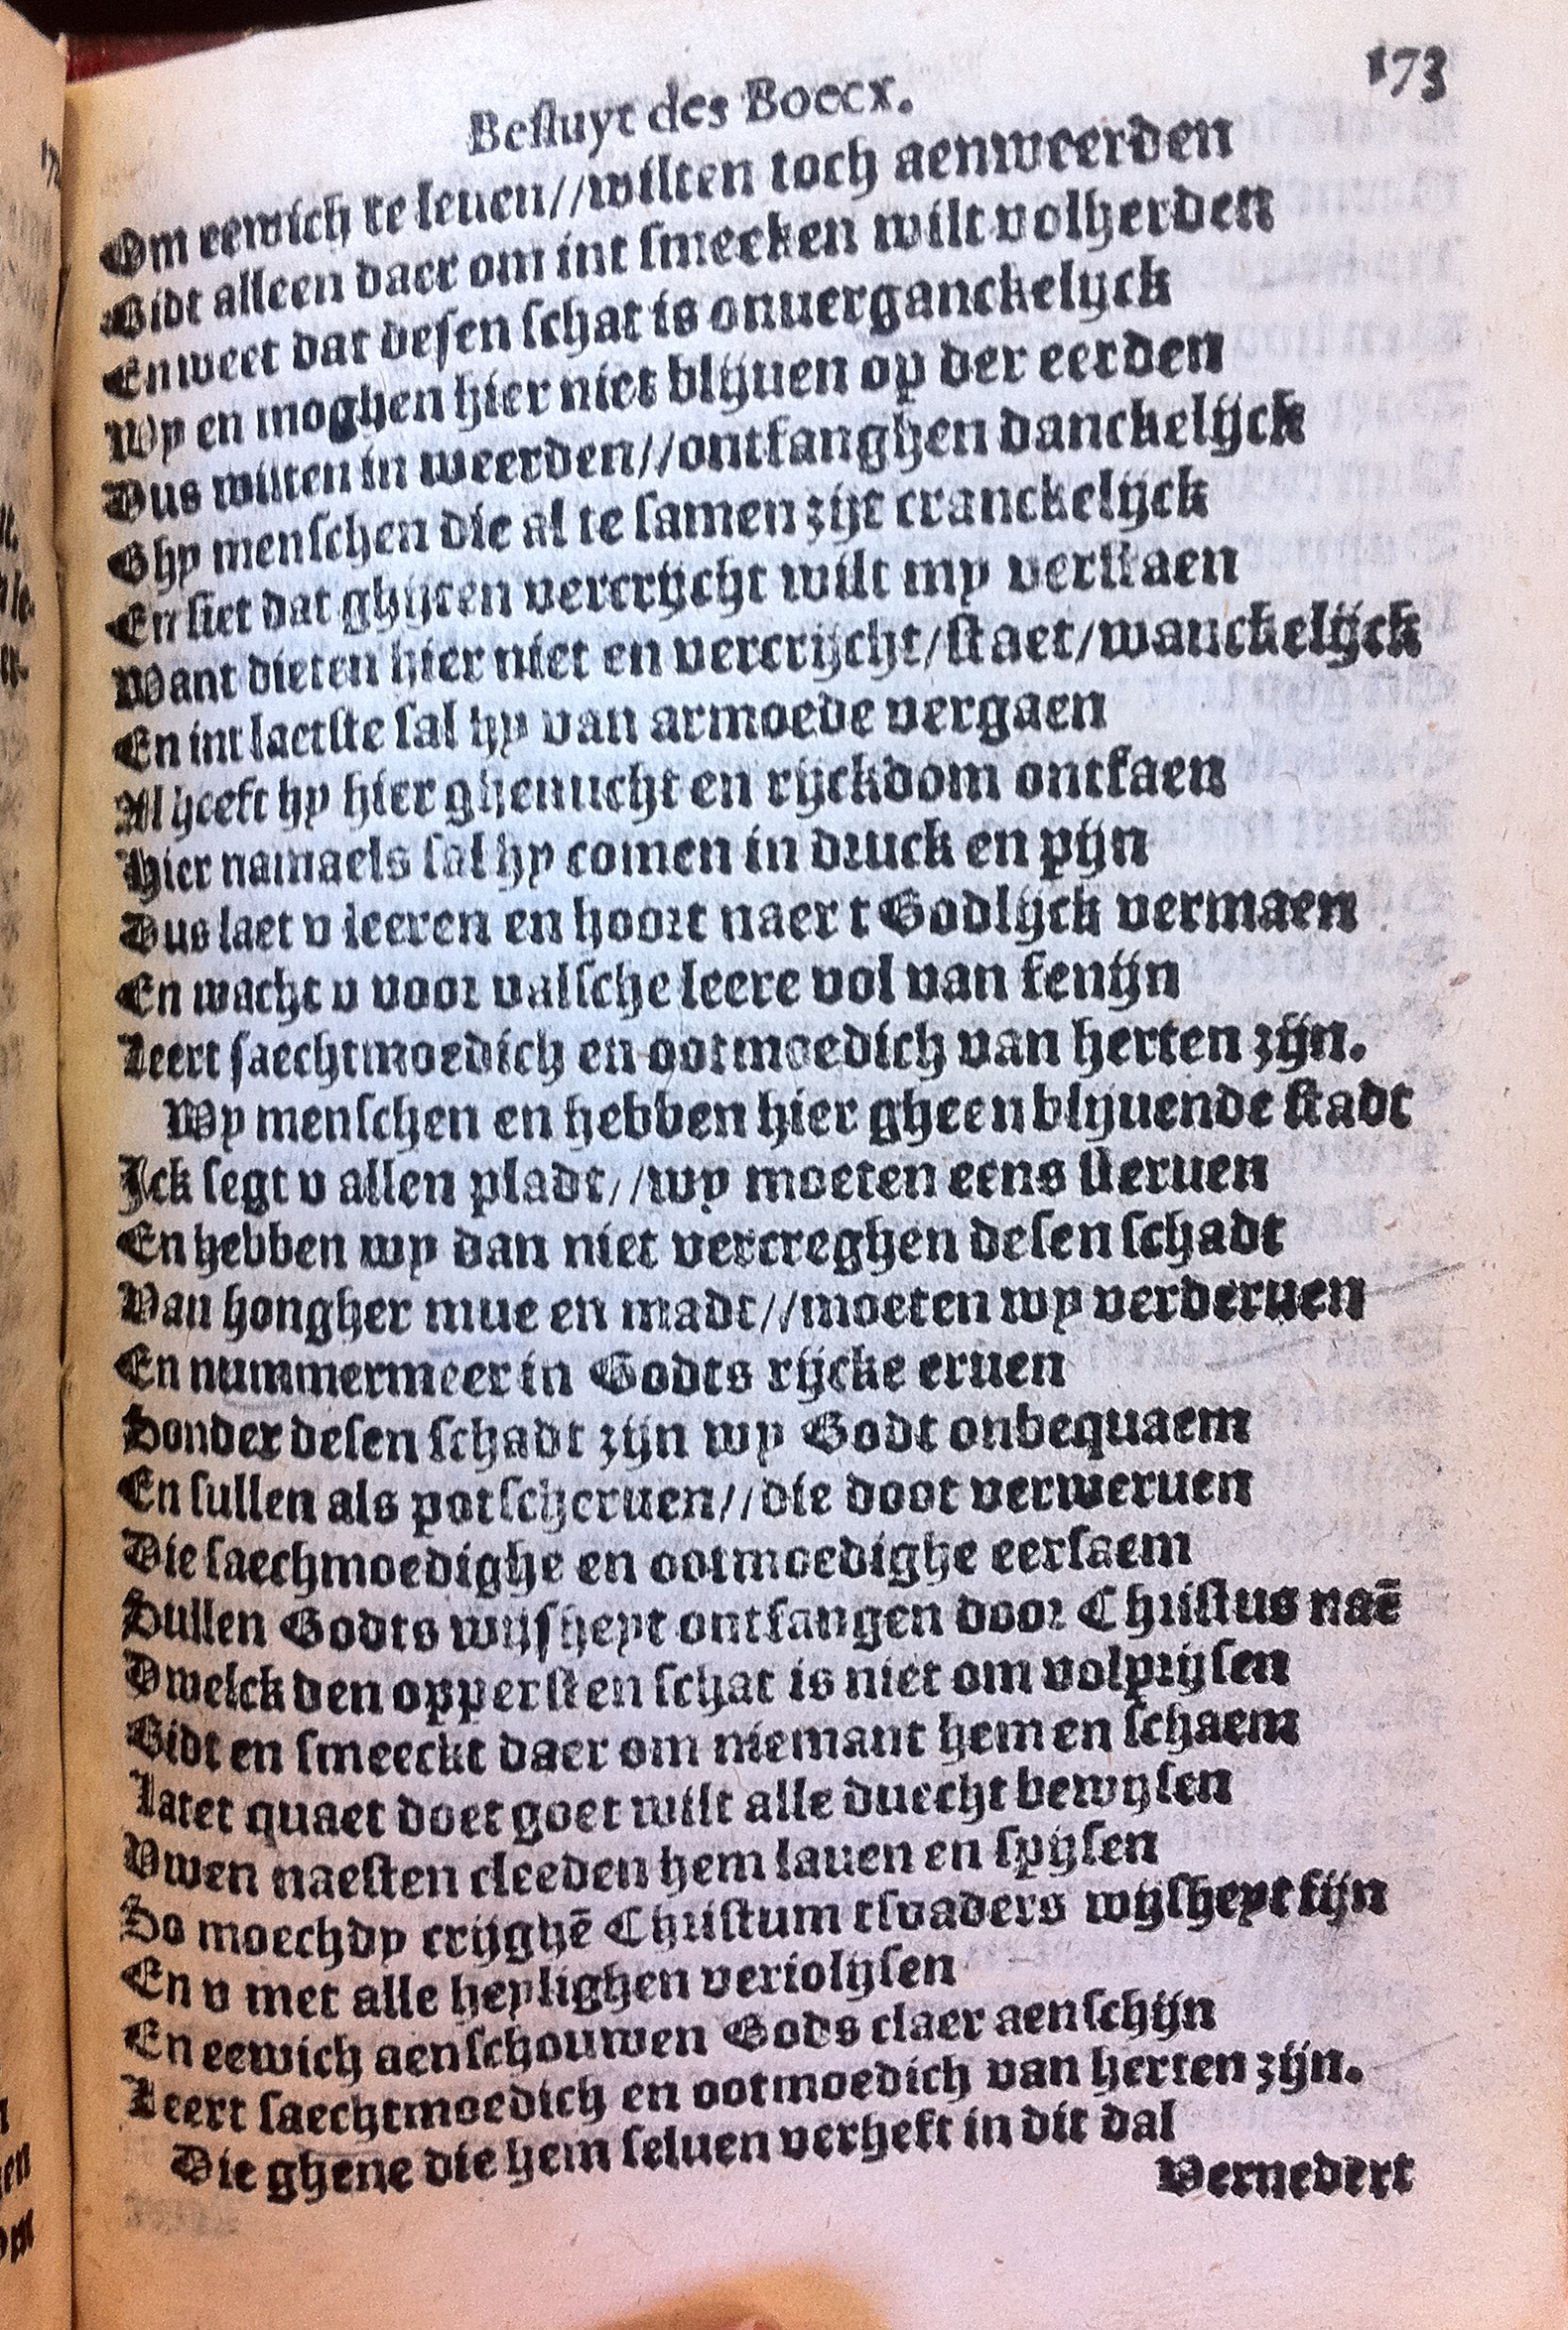 173
Besluyt des Boecx.
Om eewich te leuen//wilten toch aenweerden
Bidt alleen daer om int smecken wilt volherden
En weet dat desen schat is onuerganckelijck
Wy en moghen hier niet blijuen op der eerden
Dus wilten in weerden//ontfanghen danckelijck
Ghy menschen die al te samen zijt cranckelijck
En siet dat ghijten vercrijcht wilt my verstaen
Want dieten hier niet en vercrijcht/staet/wanckelijck
En int laetste sal hy van armoede vergaen
Al heeft hy hier ghenucht en rijckdom ontfaen
Hier namaels sal hy comen in druck en pijn
Dus laet v leeren en hoort naer t Godlijck vermaen
En wacht v voor valsche leere vol van fenijn
Leert saechtmoedich en ootmoedich van herten zijn.
Wy menschen en hebben hier gheen blijuende stadt
Ick segt v allen pladt//wy moeten eens steruen
En hebben wy dan niet vercreghen desen schadt
Van hongher mue en madt//moeten wy verderuen
En nummermeer in Godts rijcke eruen
Sonder desen schadt zijn wy Godt onbequaem
En sullen als potscheruen//die doot verweruen
Die saechmoedighe en ootmoedighe eersaem
Sullen Godts wijsheyt ontfangen door Christus naē
Dwelck den oppersten schat is niet om volprijsen
Bidt en smeeckt daer om niemant hem en schaem
Latet quaet doet goet wilt alle duecht bewijsen
Vwen naesten cleeden hem lauen en spijsen
So moechdy crijghē Christum tsvaders wijsheyt fijn
En v met alle heylighen veriolijsen
En eewich aenschouwen Gods claer aenschijn
Leert saechtmoedich en ootmoedich van herten zijn.
Die ghene die hem seluen verheft in dit dal
Vernedert